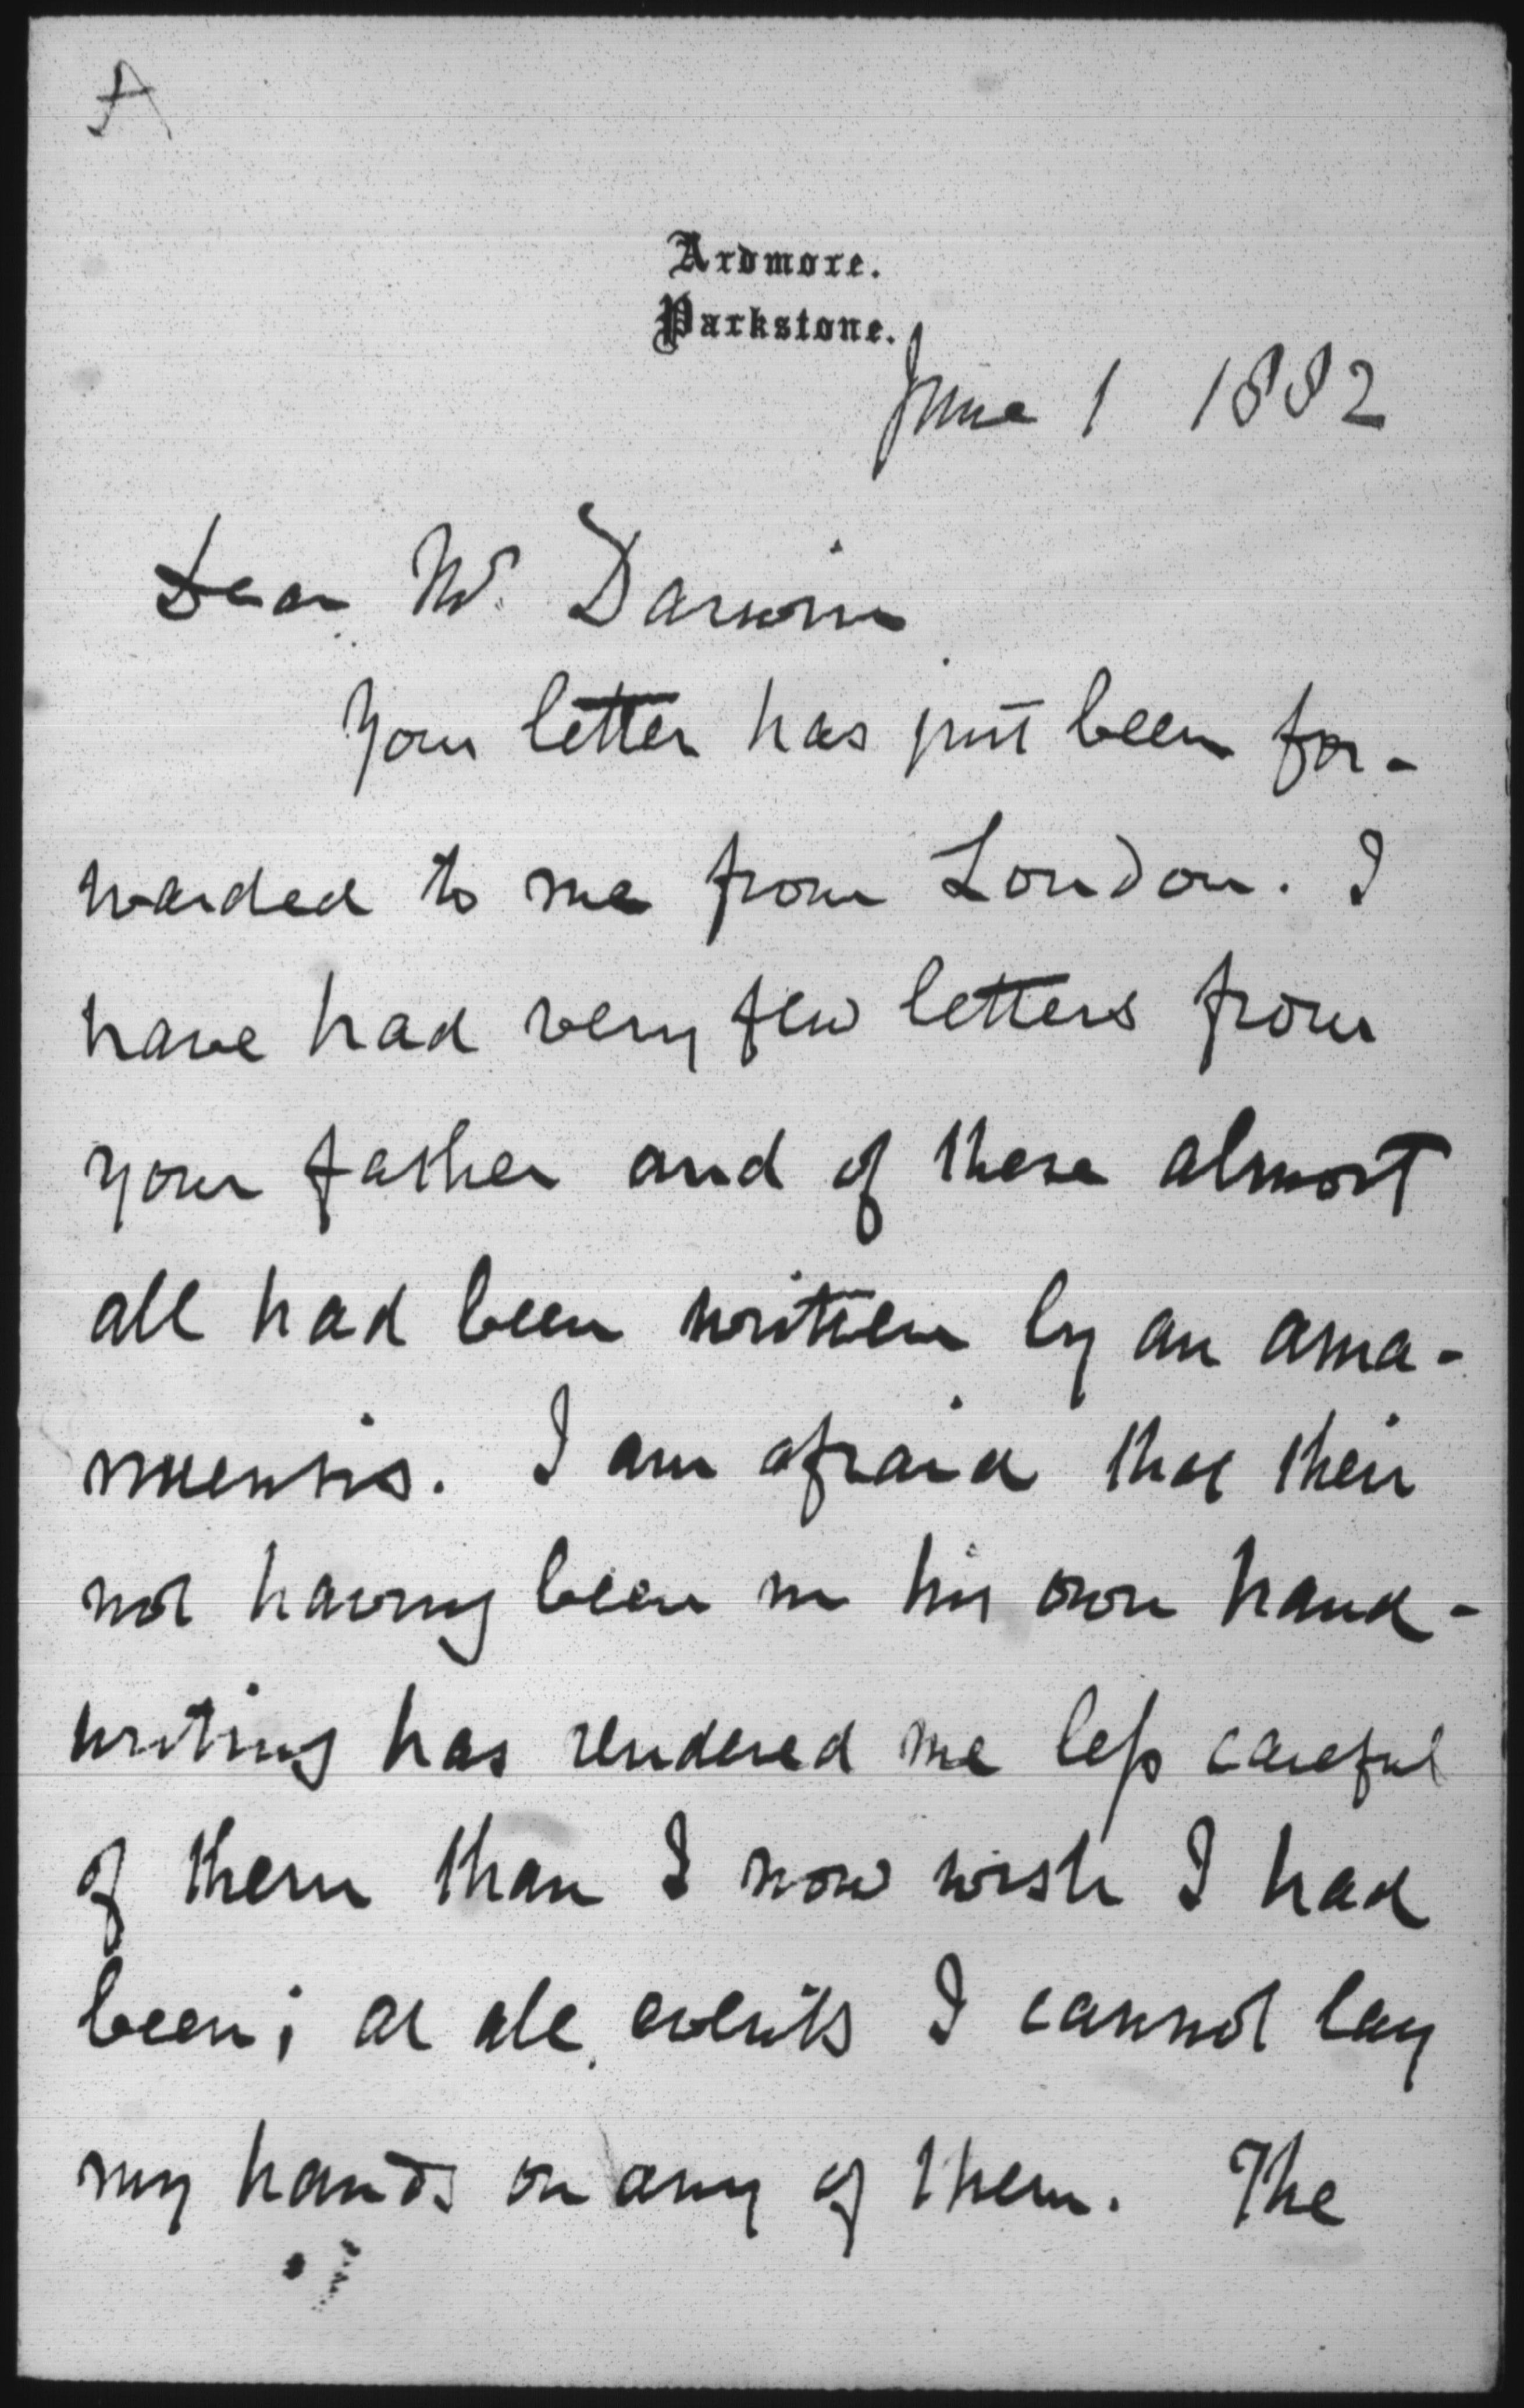 A
Ardmore.
Parkstone.
June 1 1882
Dear Mr. Darwin
Your letter has just been for-
warded to me from London. I
have had very few letters from
your father and of these almost
all had been written by an ama-
nuensis. I am afraid that their
not having been in his own hand-
writing has rendered me less careful
of them than I now wish I had
been; at all events I cannot lay
my hands on any of them. The